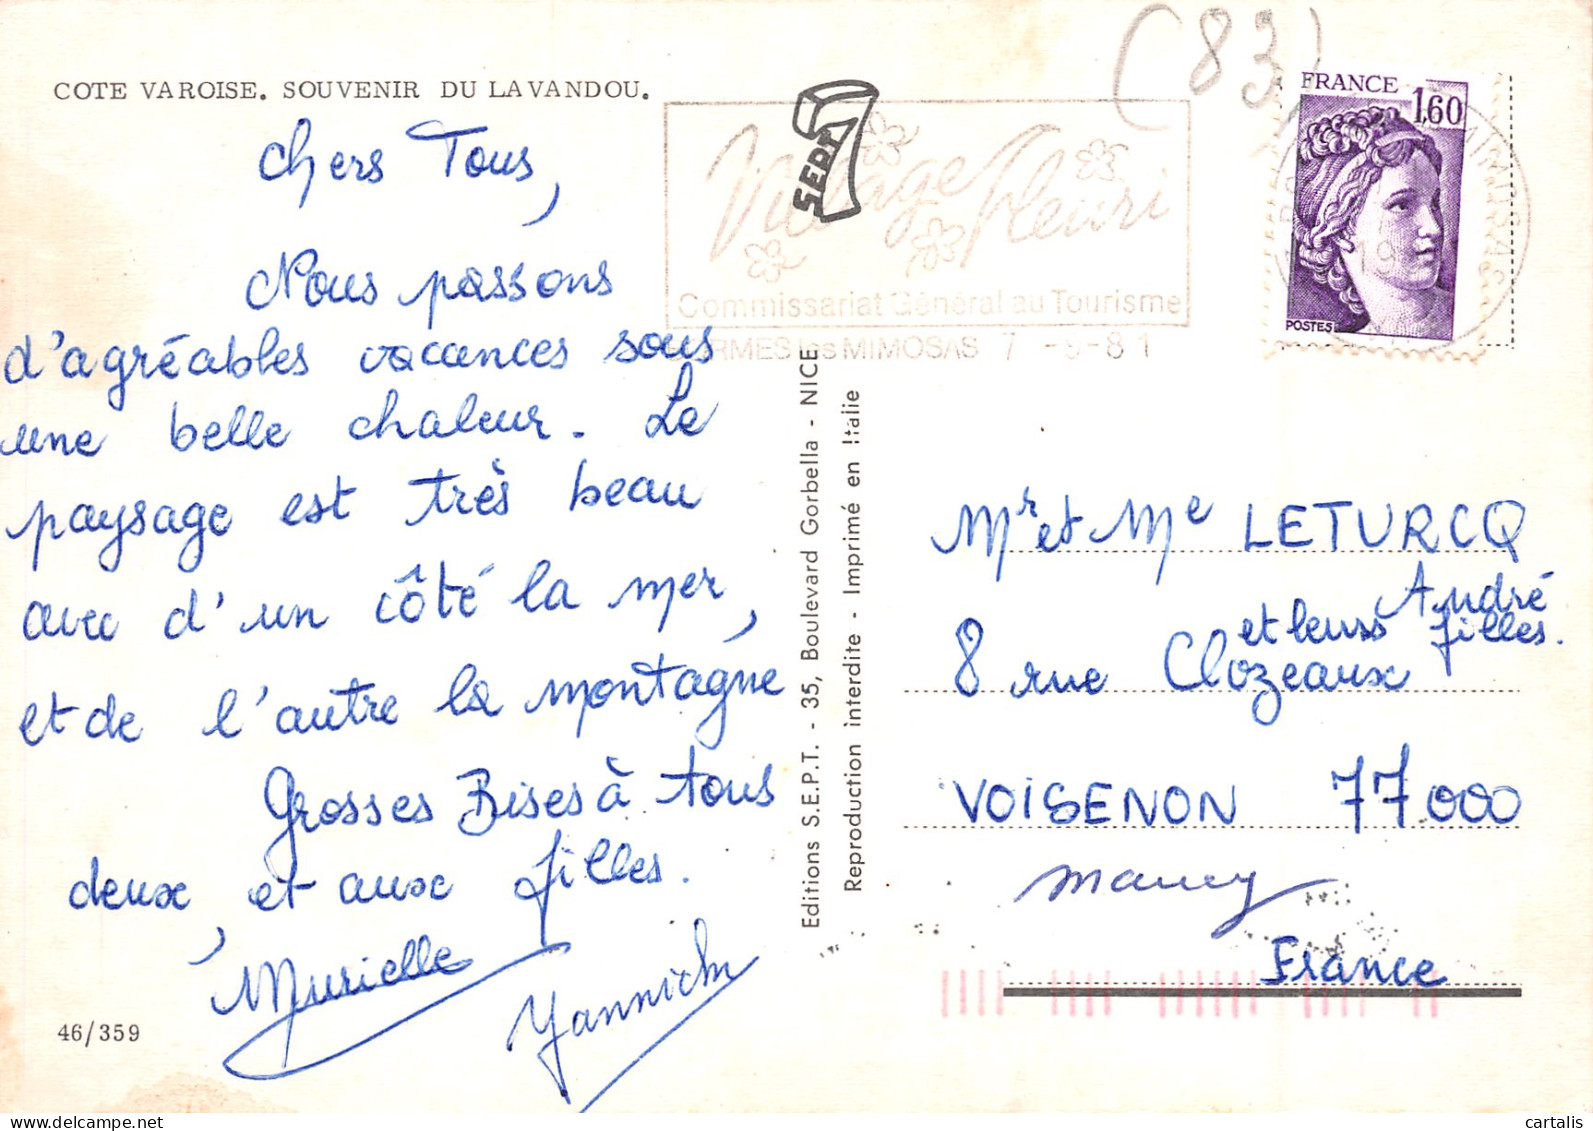 COTE VAROISE. SOUVENIR DU LAVANDOU.
Chers Tous,
Nous passons
d'agréables vacances sous
une belle chaleur. Le
paysage est très beau
avec d'un côté la mer,
et de l'autre la montagne
Grosses Bises à tous
deux, et aux filles.
Murielle
Yannick
46/359
SEPT
Village Fleuri
Commissariat Général au Tourisme
BORMES les MIMOSAS 7 -9-81
(83)
FRANCE
1,60
POSTES
Editions S.E.P.T. - 35, Boulevard Gorbella - NICE
Reproduction interdite - Imprimé en Italie
Mr et Me LETURCQ
André
et leurs filles.
8 rue Clozeaux
VOISENON 77000
Maincy
France
cartalis
© delcampe.net